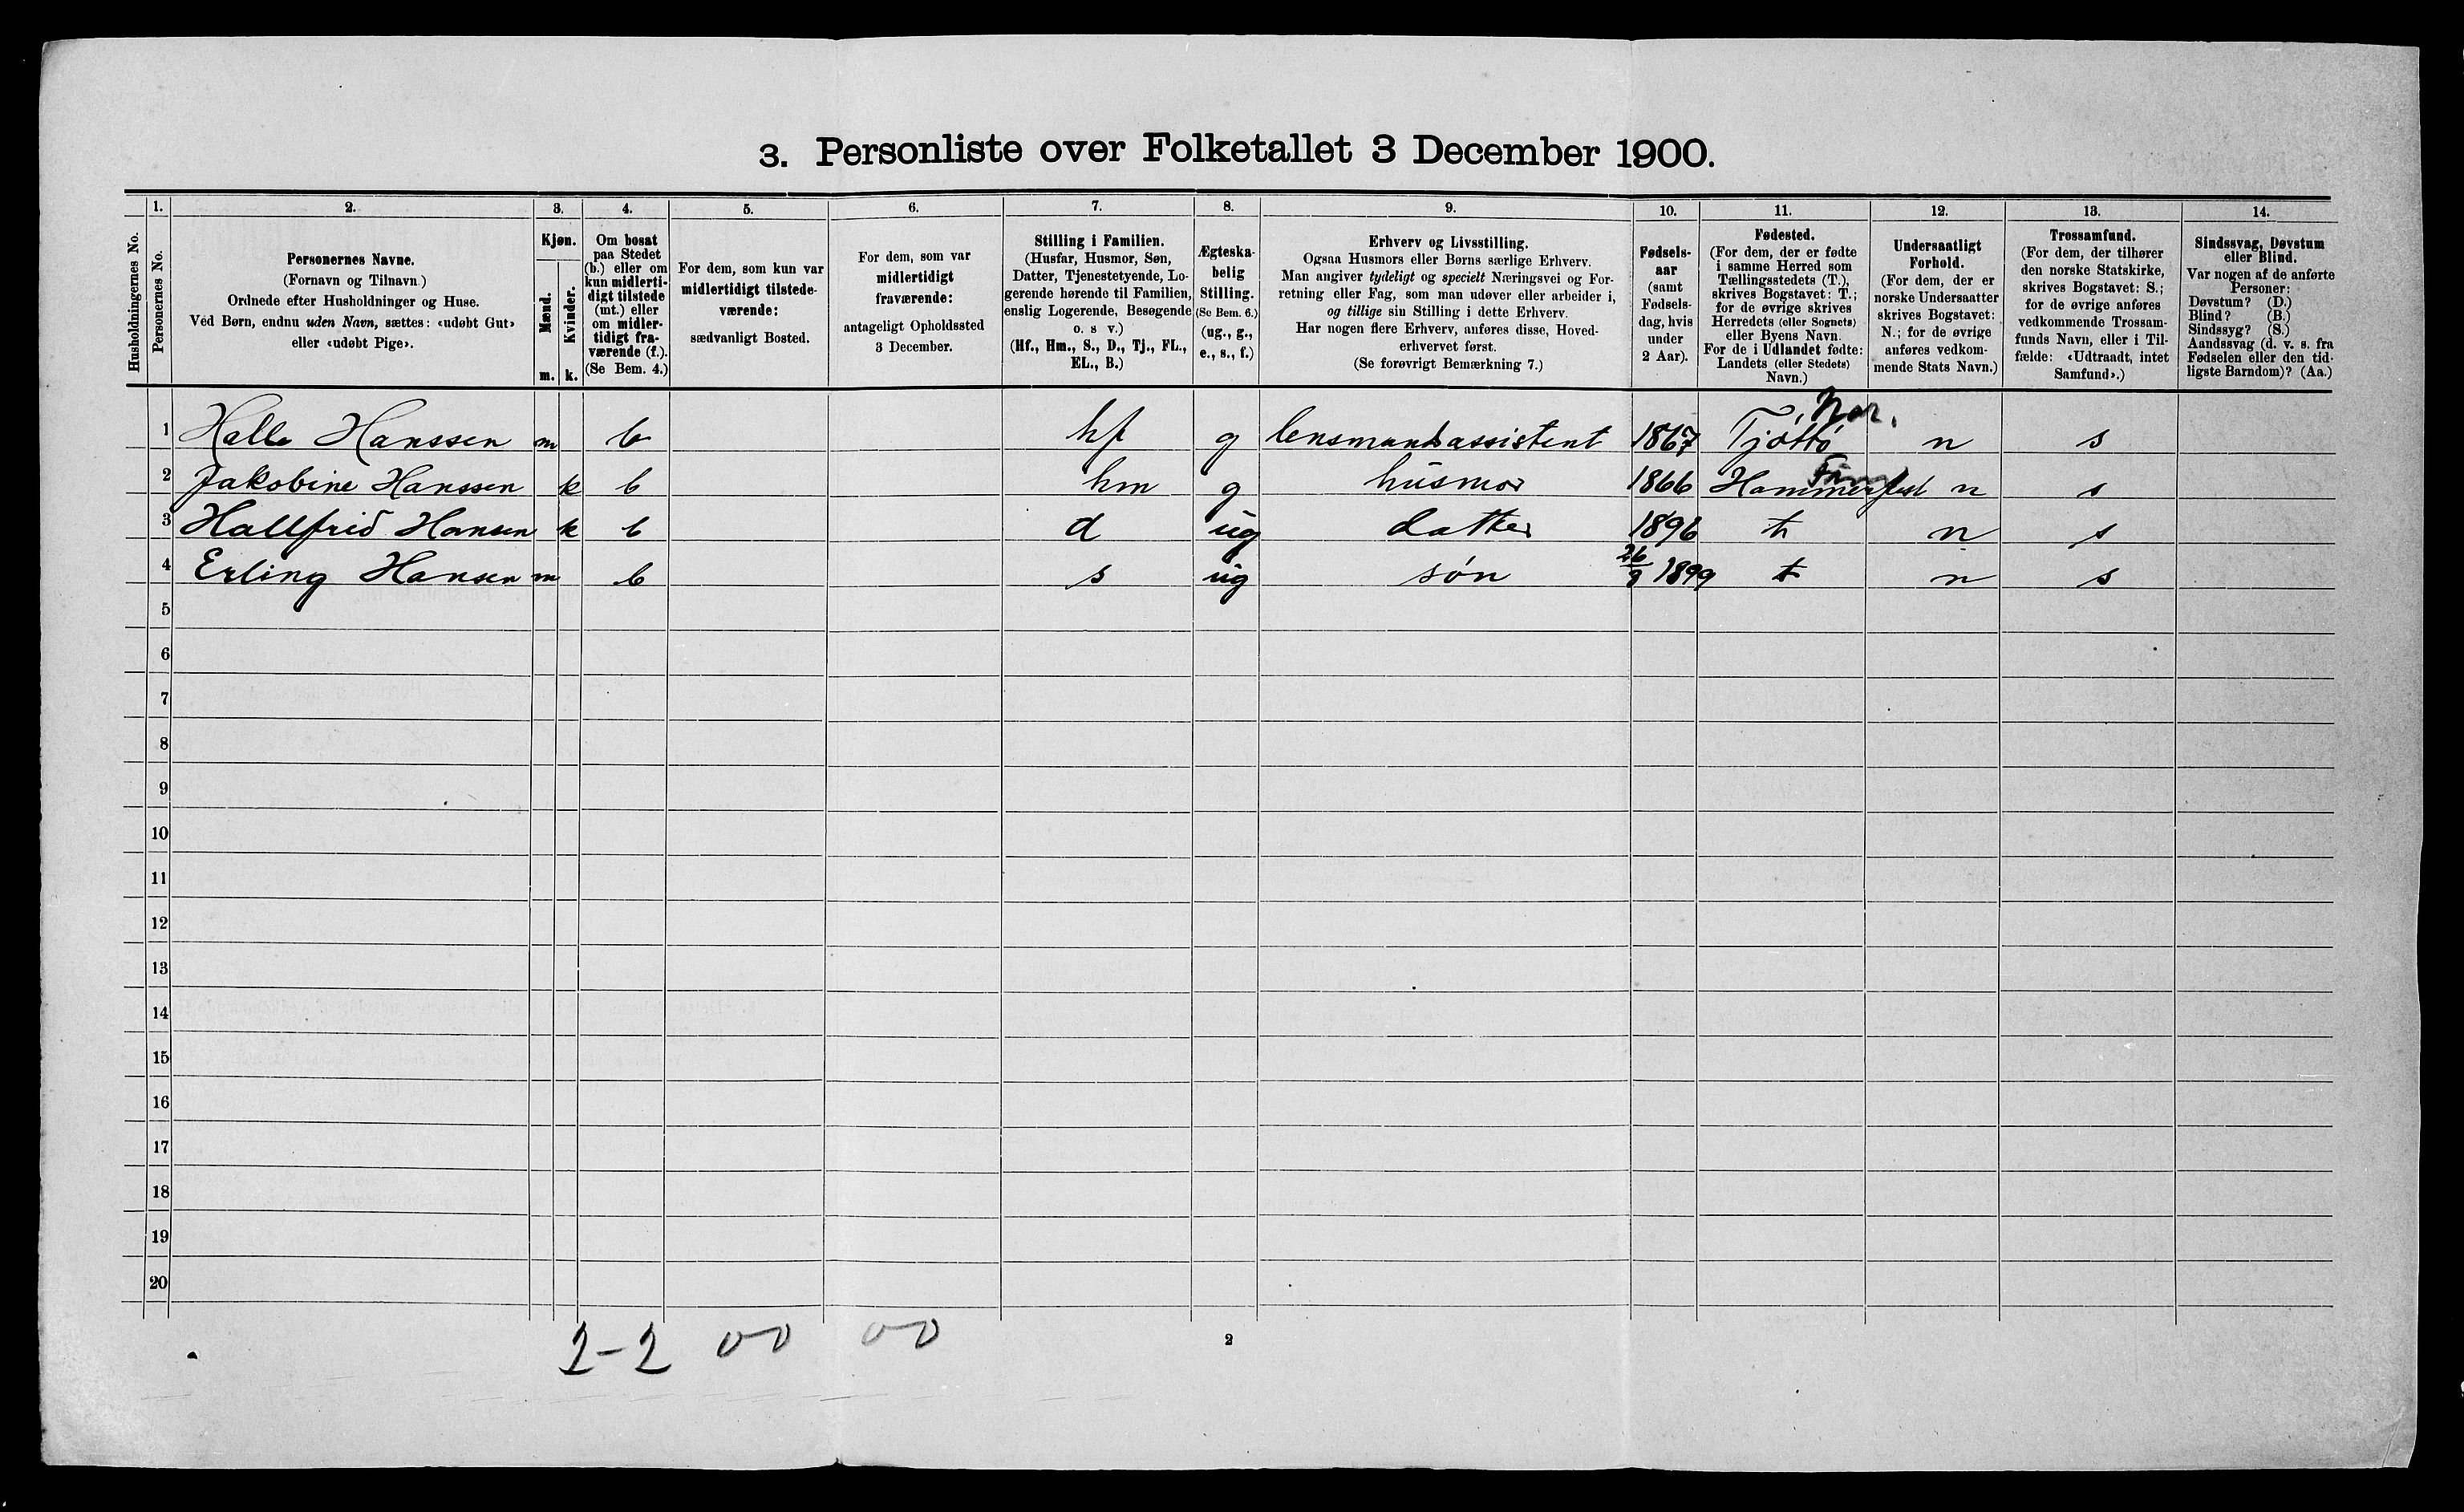 3. Personliste over Folketallet 3 December 1900.
Husholdningernes No.
1.
Personernes No.
2.
Personernes Navne.
(Fornavn og Tilnavn)
Ordnede efter Husholdninger og Huse.
Ved Børn, endnu uden Navn, sættes: «udøbt Gut»
eller «udøbt Pige».
3.
Kjøn.
Mænd.
Kvinder.
m. k.
4.
Om bosat
paa Stedet
(b.) eller om
kun midlerti-
digt tilstede
(mt.) eller
om midler-
tidigt fra-
værende (f.).
(Se Bem. 4.)
5.
For dem, som kun var
midlertidigt tilstede-
værende:
sædvanligt Bosted.
6.
For dem, som var
midlertidigt
fraværende:
antageligt Opholdssted
3 December.
7.
Stilling i Familien.
(Husfar, Husmor, Søn,
Datter, Tjenestetyende, Lo-
gerende hørende til Familien,
enslig Logerende, Besøgende
o. s v.)
(Hf., Hm., S., D., Tj., FL.,
EL., B.)
8.
Ægteska-
belig
Stilling.
(Se Bem. 6.)
(ug., g.,
e., s., f.)
9.
Erhverv og Livsstilling.
Ogsaa Husmors eller Børns særlige Erhverv.
Man angiver tydeligt og specielt Næringsvei og For-
retning eller Fag, som man udøver eller arbeider i,
og tillige sin Stilling i dette Erhverv.
Har nogen flere Erhverv, anføres disse, Hoved-
erhvervet først.
(Se forøvrigt Bemærkning 7.)
10.
Fødsels-
aar
(samt
Fødsels-
dag, hvis
under
2 Aar).
11.
Fødested.
(For dem, der er fødte
i samme Herred som
Tællingsstedets (T.),
skrives Bogstavet: T.;
for de øvrige skrives
Herredets (eller Sognets)
eller Byens Navn.
For de i Udlandet fødte:
Landets (eller Stedets)
Navn.)
12.
Undersaatligt
Forhold.
(For dem, der er
norske Undersaatter
skrives Bogstavet:
N.; for de øvrige
anføres vedkom-
mende Stats Navn.)
13.
Trossamfund.
(For dem, der tilhører
den norske Statskirke,
skrives Bogstavet: S.;
for de øvrige anføres
vedkommende Trossam-
funds Navn, eller i Til-
fælde: «Udtraadt, intet
Samfund».)
14.
Sindssvag, Døvstum
eller Blind.
Var nogen af de anførte
Personer:
Døvstum? (D.)
Blind? (B.)
Sindssyg? (S.)
Aandssvag (d. v. s. fra
Fødselen eller den tid-
ligste Barndom)? (Aa.)
Nor.
1 Halle Hanssen m b hf g lensmandsassistent 1867 Tjøttø n s
Finm
2 Jakobine Hanssen k b hm g husmor 1866 Hammerfest n s
3 Hallfrid Hansen k b d ug datter 1896 t n s
4 Erling Hansen m b s ug søn 26/9 1899 t n s
5
6
7
8
9
10
11
12
13
14
15
16
17
18
19
20
2-2 00 00
2